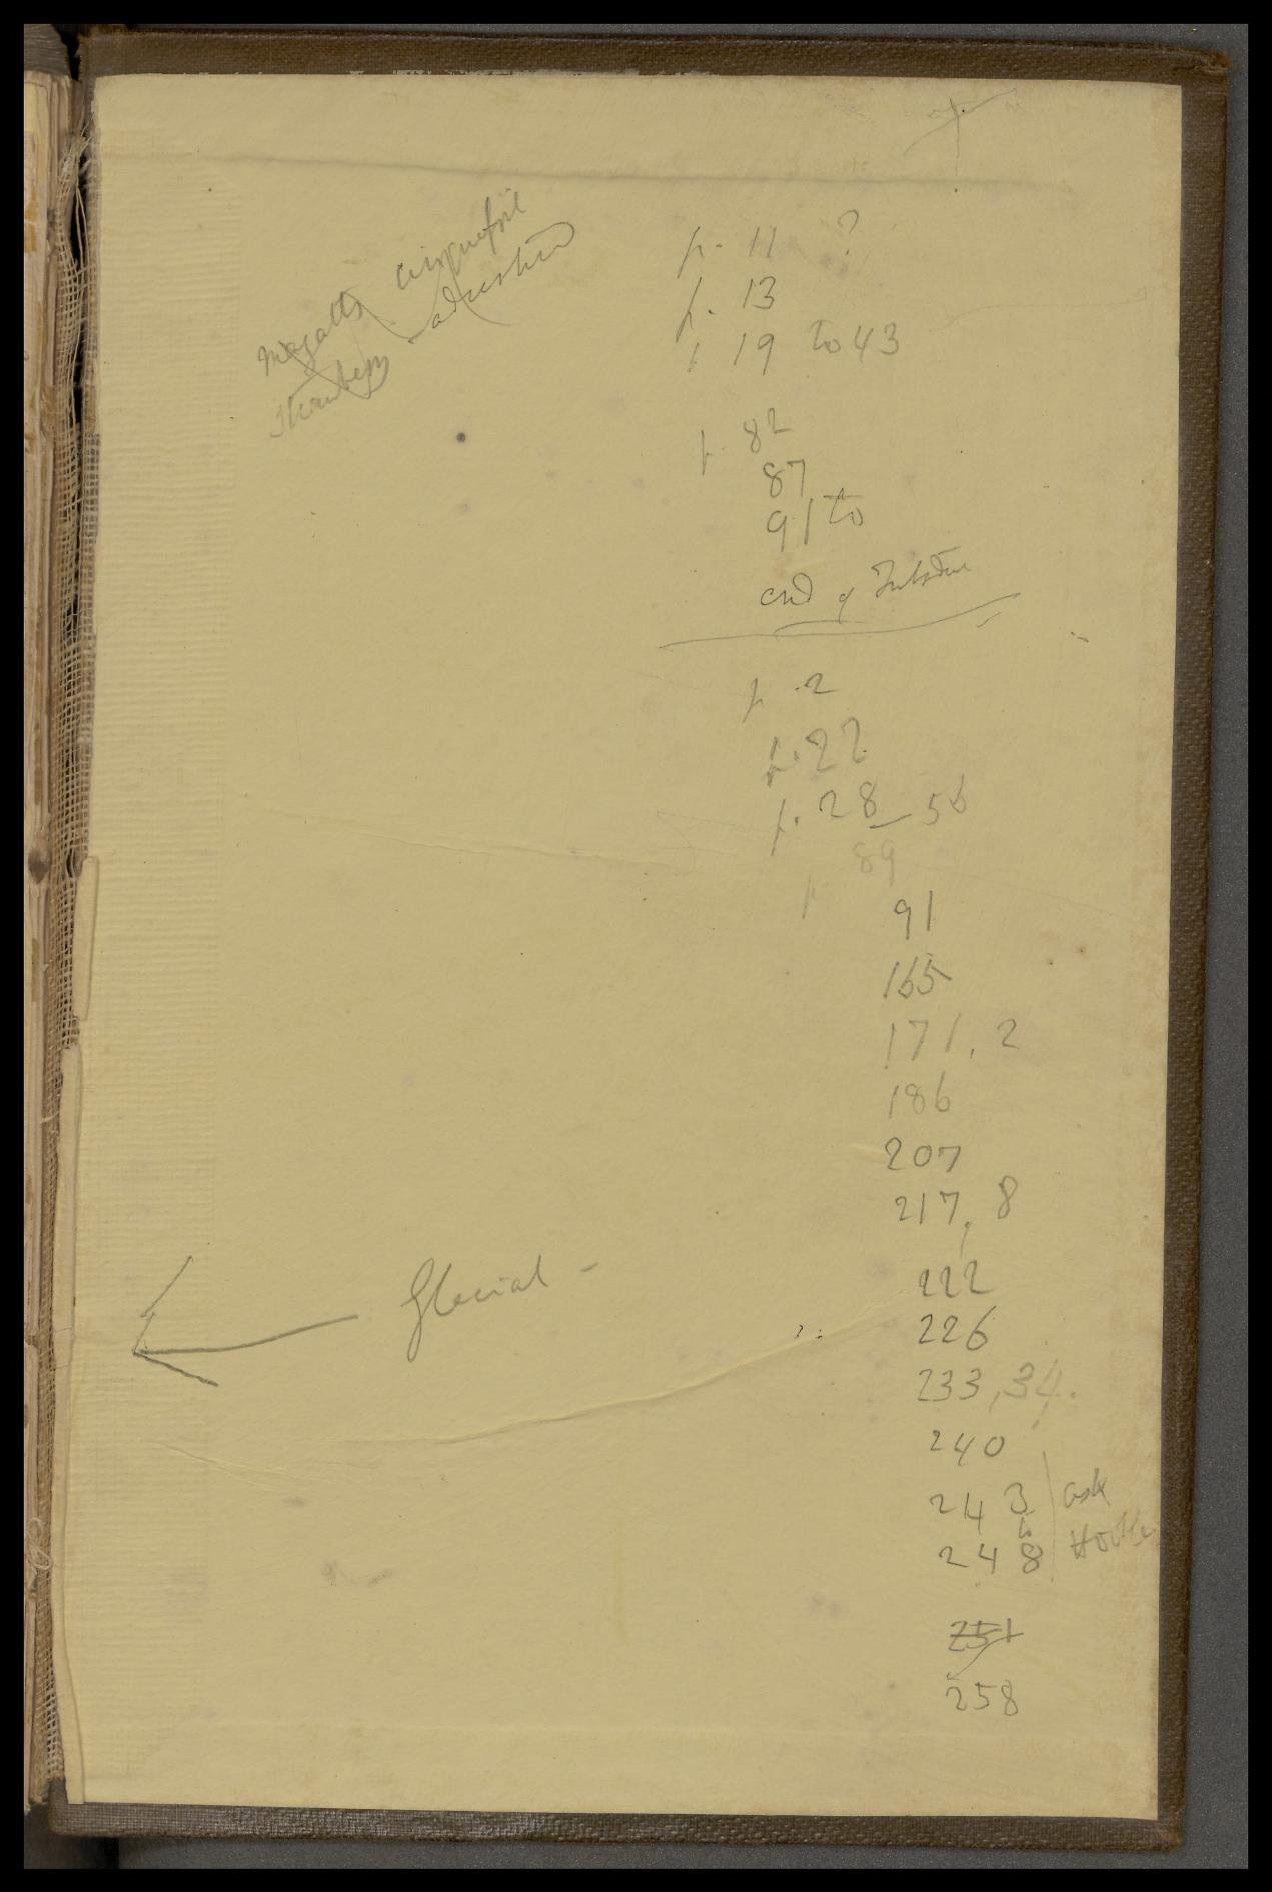 cinquefoil
p. 11 ?
p. 13
p 19 to 43
p. 82
87
91 to
end of
p. 2
p. 22
p. 28 — 56
p 89
91
165
171, 2
186
207
217, 8
Glacial -
222
226
233, 34.
240
243 ask
to
248
251
258